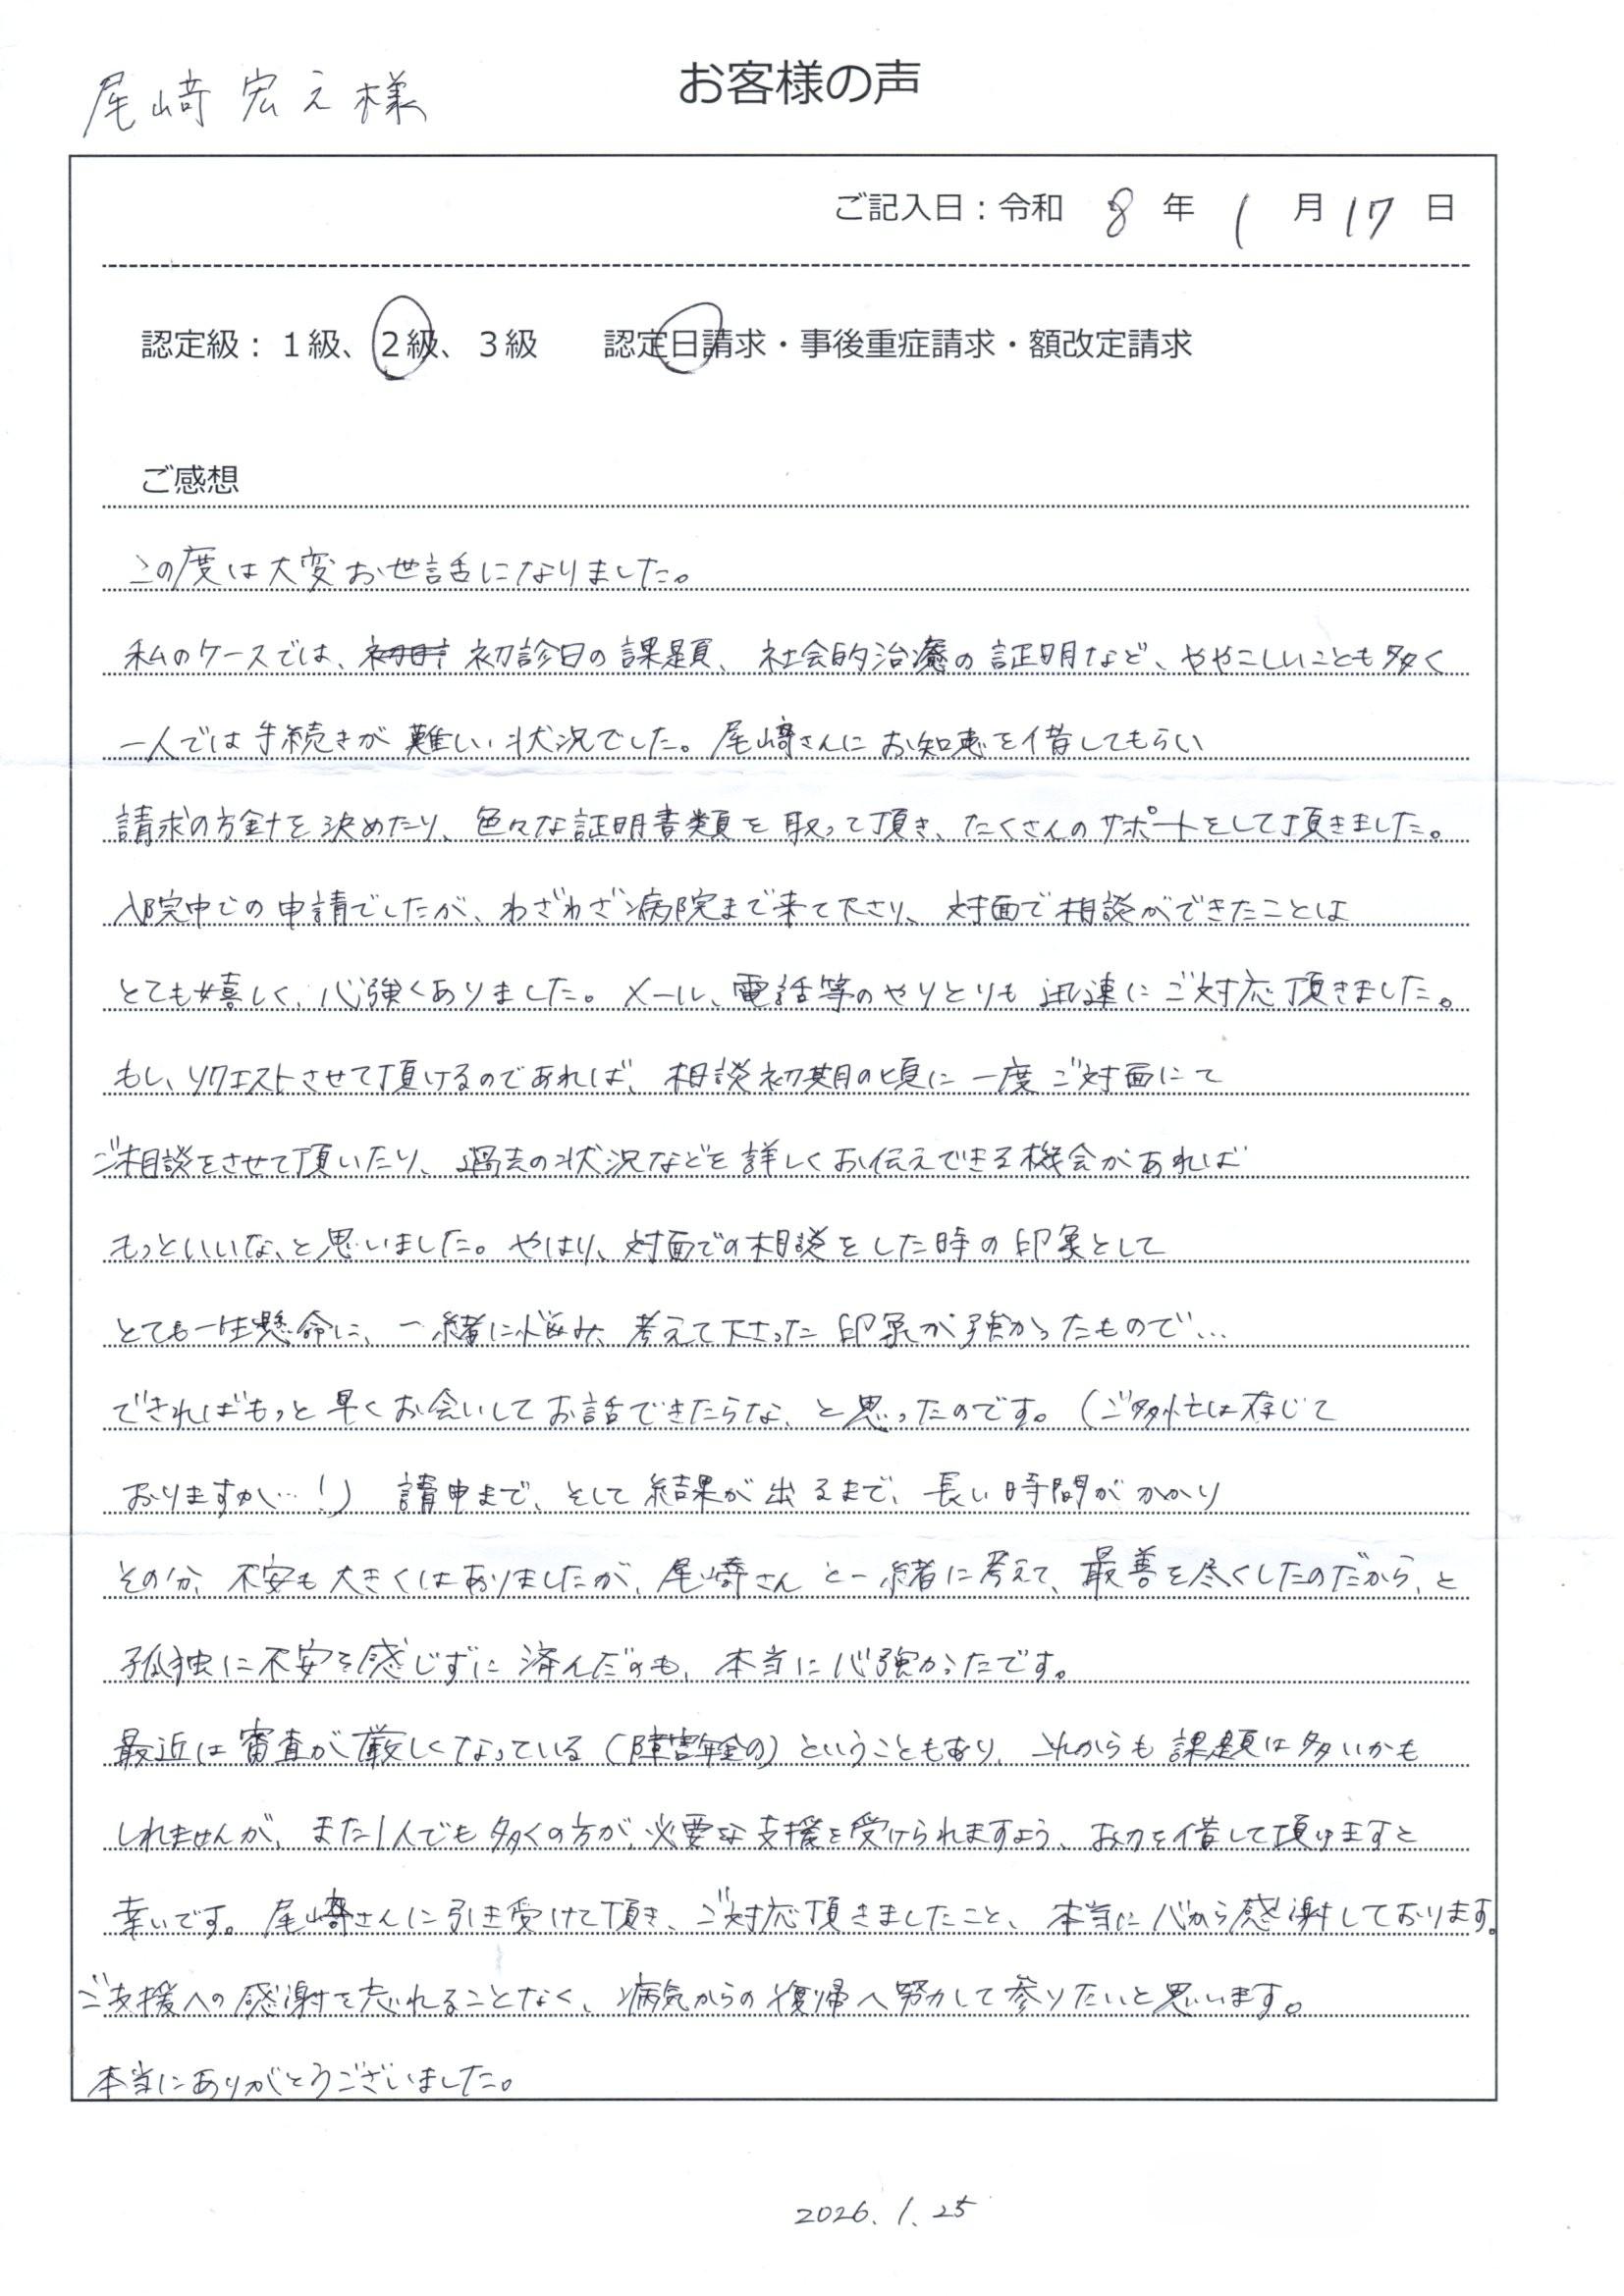 お客様の声
尾﨑 宏え様
ご記入日：令和 8 年 1 月 17 日
認定級：１級、２級、３級 認定日請求・事後重症請求・額改定請求
ご感想
この度は大変お世話になりました。
私のケースでは、初診日の課題、社会的治癒の証明など、ややこしいことも多く
一人では手続きが難しい状況でした。尾﨑さんにお知恵を借してもらい
請求の方針を決めたり、色々な証明書類を取って頂き、たくさんのサポートをして頂きました。
入院中での申請でしたが、わざわざ病院まで来て下さり、対面で相談ができたことは
とても嬉しく、心強くありました。メール、電話等のやりとりも迅速にご対応頂きました。
もし、リクエストさせて頂けるのであれば、相談初期の頃に一度ご対面にて
ご相談をさせて頂いたり、過去の状況などを詳しくお伝えできる機会があれば
もっといいな、と思いました。やはり、対面での相談をした時の印象として
とても一生懸命に、一緒に悩み、考えて下さった印象が強かったもので…
できればもっと早くお会いしてお話できたらな、と思ったのです。（ご多忙は存じて
おりますが…！） 請申まで、そして結果が出るまで、長い時間がかかり
その分、不安も大きくはありましたが、尾﨑さんと一緒に考えて、最善を尽くしたのだから、と
孤独に不安を感じずに済んだのも、本当に心強かったです。
最近は審査が厳しくなっている（障害年金の）ということもあり、これからも課題は多いかも
しれませんが、また1人でも多くの方が、必要な支援を受けられますよう、お力を借して頂けますと
幸いです。尾﨑さんに引き受けて頂き、ご対応頂きましたこと、本当に心から感謝しております。
ご支援への感謝を忘れることなく、病気からの復帰へ努力して参りたいと思います。
本当にありがとうございました。
2026.1.25